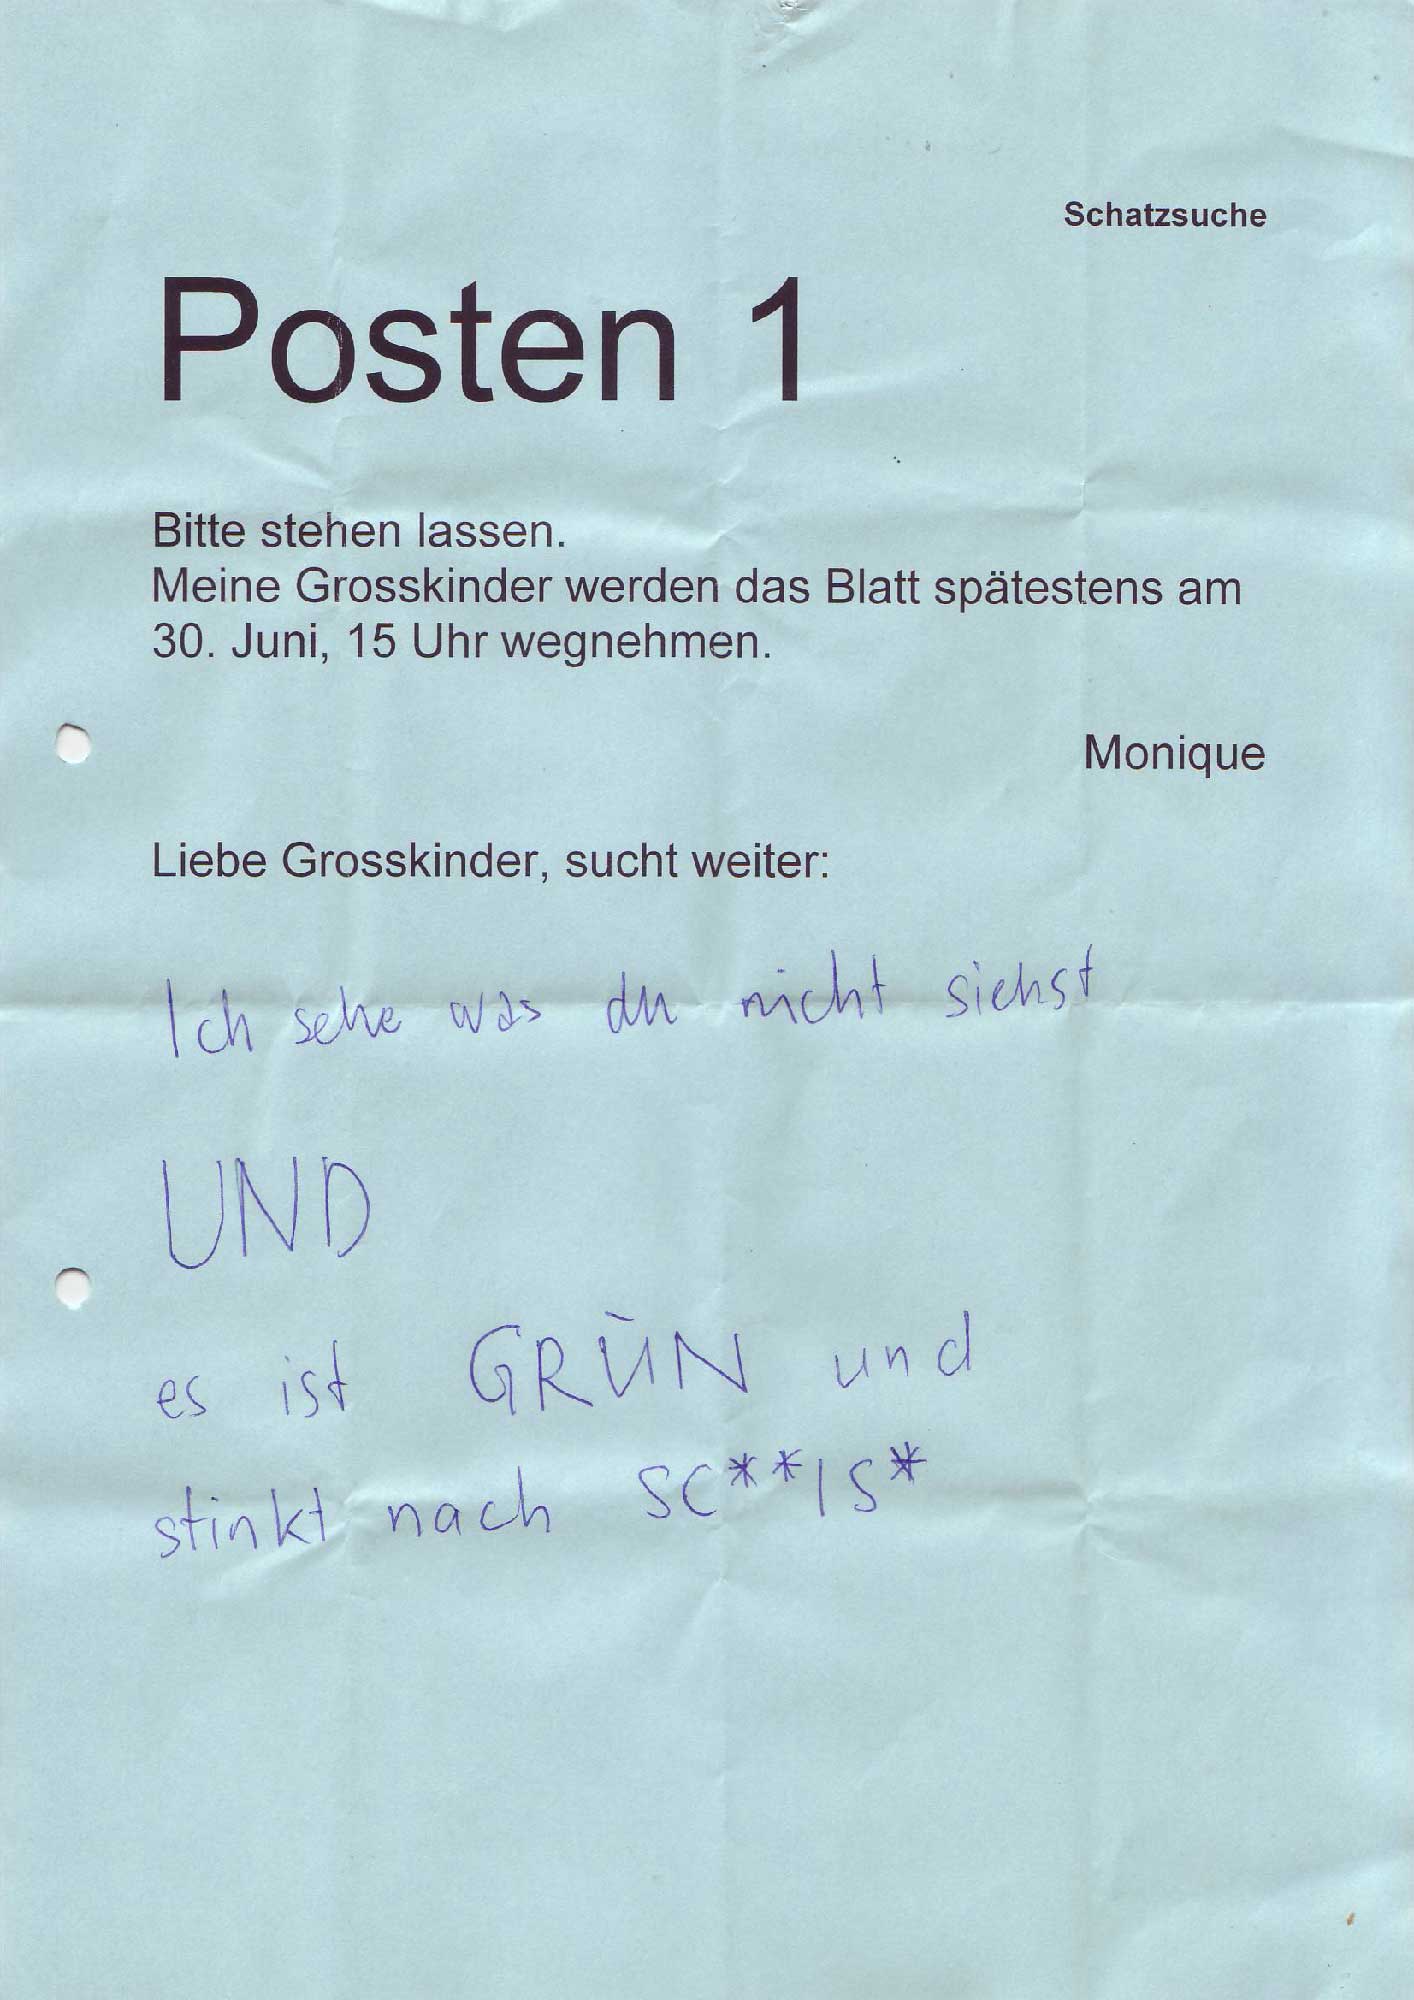 Schatzsuche
Posten 1
Bitte stehen lassen.
Meine Grosskinder werden das Blatt spätestens am
30. Juni, 15 Uhr wegnehmen.
Monique
Liebe Grosskinder, sucht weiter:
Ich sehe was du nicht siehst
UND
es ist GRÜN und
stinkt nach SC**IS*